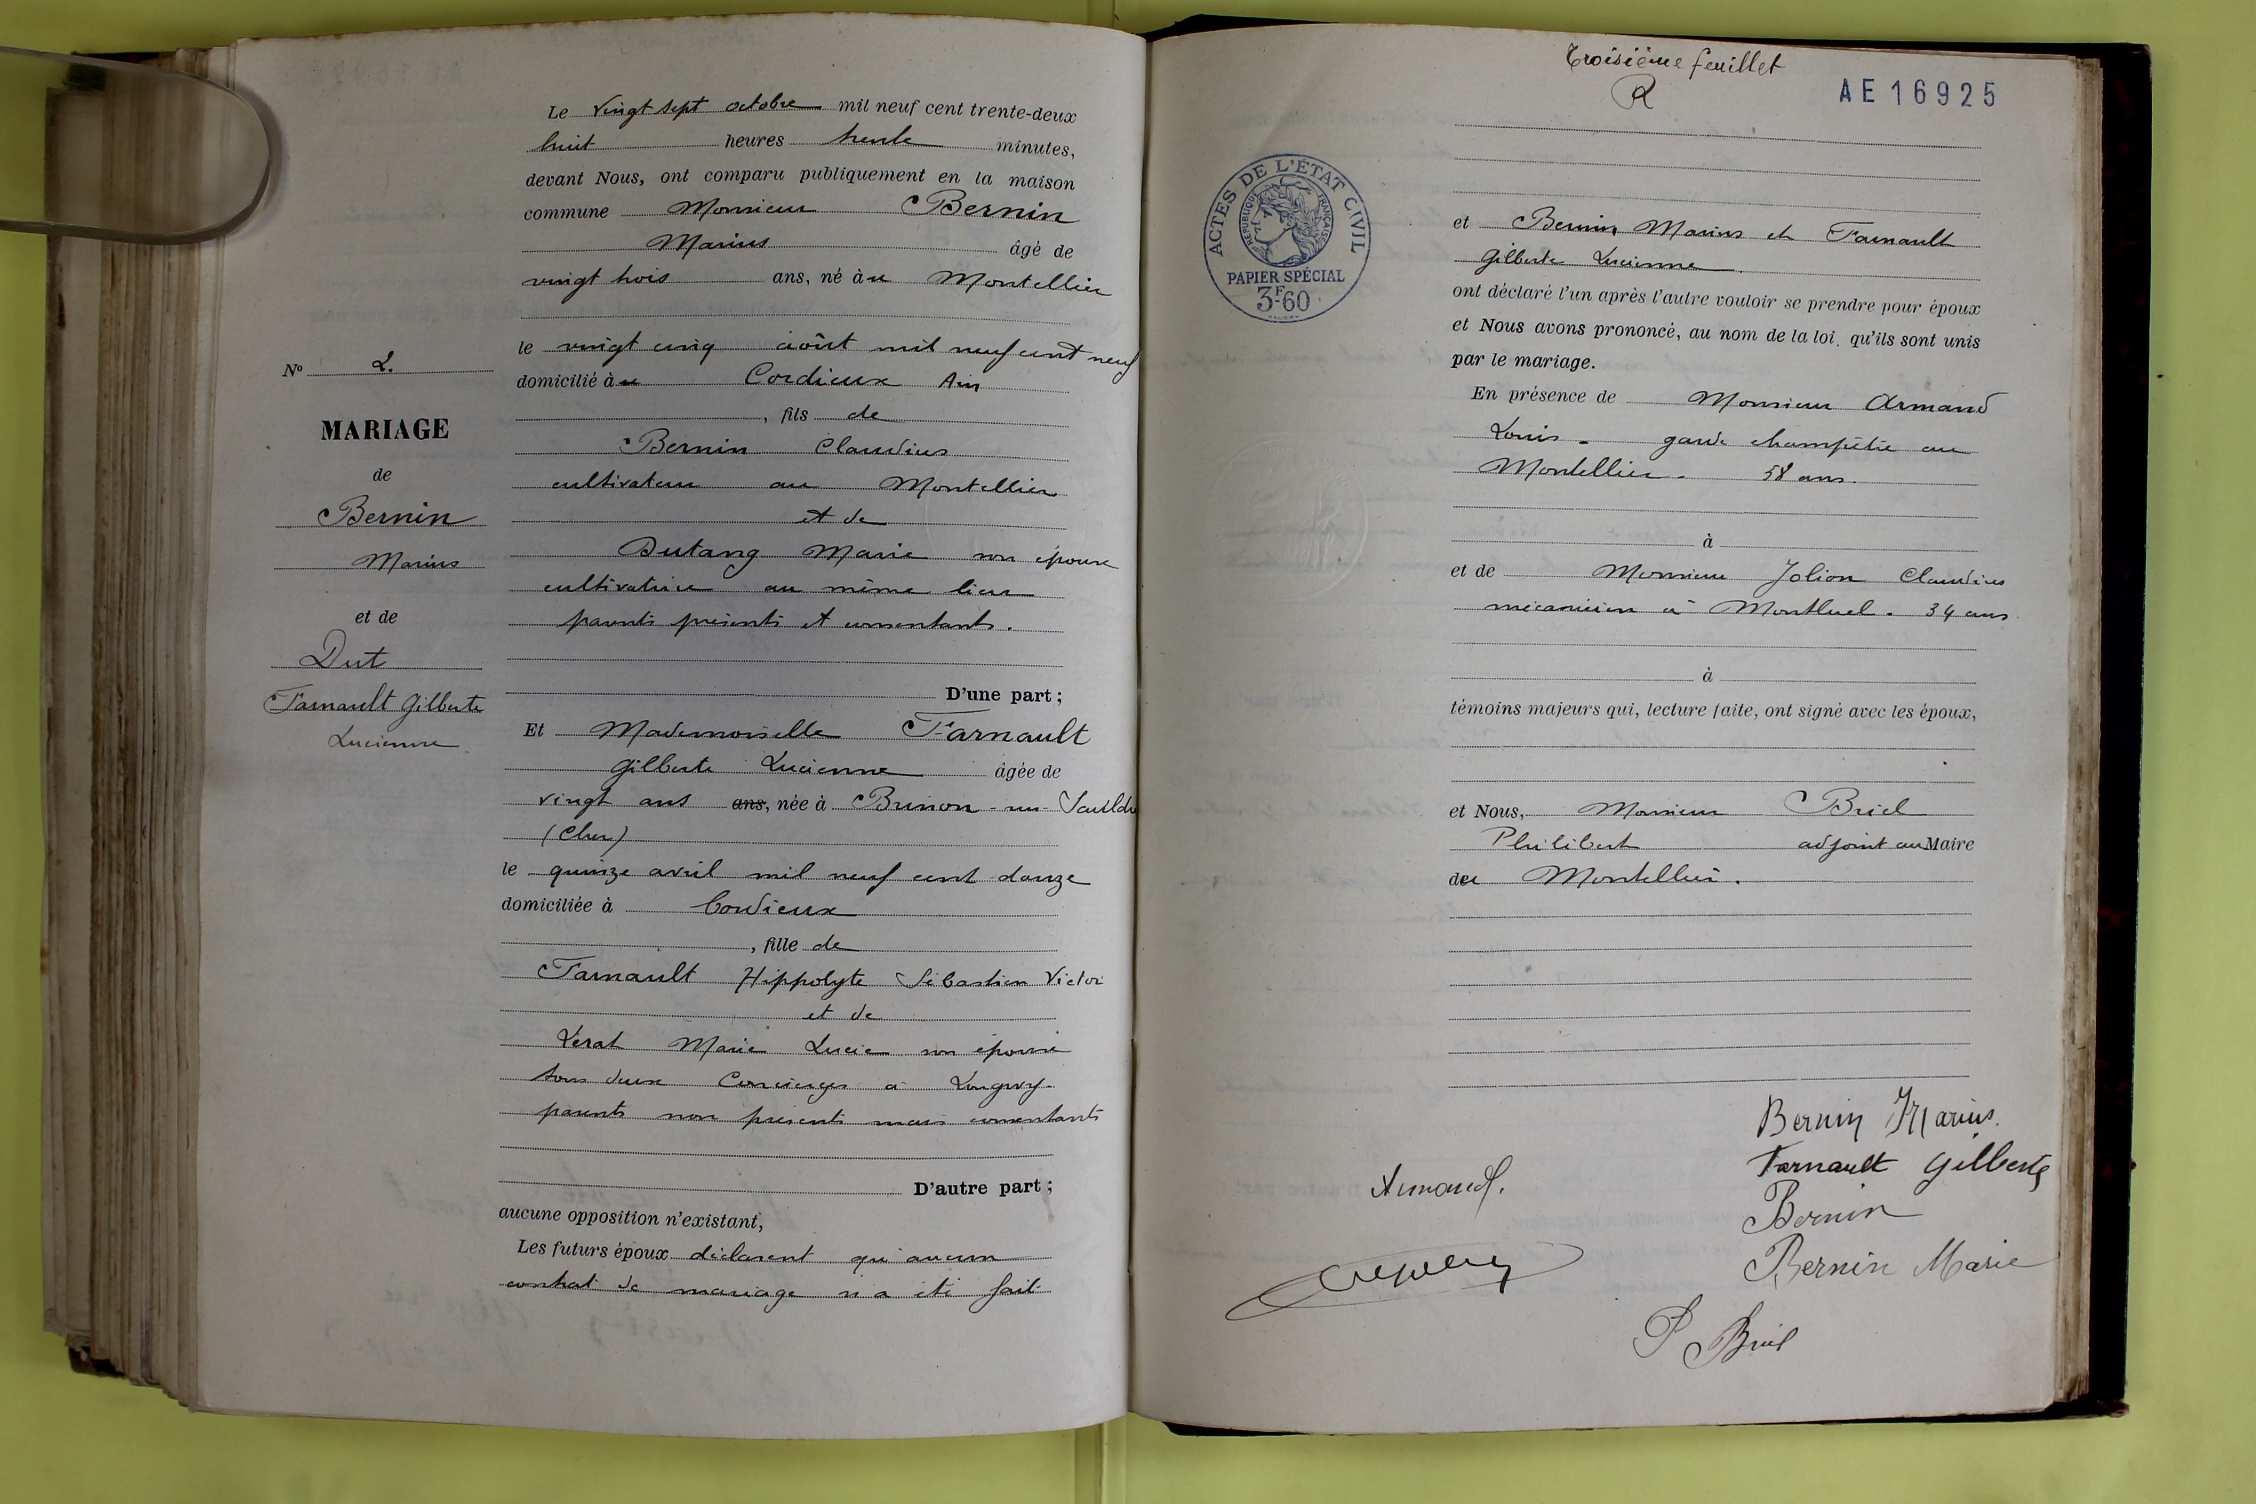 Le vingt sept octobre mil neuf cent trente-deux
huit heures trente minutes,
devant Nous, ont comparu publiquement en la maison
commune Monsieur Bernin
Marius âgé de
vingt trois ans, né au Montellier
le vingt cinq août mil neuf cent neuf
domicilié à Cordieux Ain
, fils de
Bernin Claudius
cultivateur au Montellier
et de
Dutang Marie son épouse
cultivatrice au même lieu
parents présents et consentants.
D'une part ;
Et Mademoiselle Farnault
Gilberte Lucienne âgée de
vingt ans ans, née à Brinon-sur-Sauldre
(Cher)
le quinze avril mil neuf cent douze
domiciliée à Cordieux
, fille de
Farnault Hippolyte Sébastien Victor
et de
Lerat Marie Lucie son épouse
tous deux Concierges à Longwy-
parents non présents mais consentants
D'autre part ;
aucune opposition n'existant,
Les futurs époux déclarent qu'aucun
contrat de mariage n'a été fait
No 2.
MARIAGE
de
Bernin
Marius
et de
Dut
Farnault Gilberte
Lucienne
Troisième feuillet
R
AE16925
ACTES DE L'ÉTAT CIVIL
RÉPUBLIQUE FRANÇAISE
PAPIER SPÉCIAL
3F60
et Bernin Marius et Farnault
Gilberte Lucienne.
ont déclaré l'un après l'autre vouloir se prendre pour époux
et Nous avons prononcé, au nom de la loi, qu'ils sont unis
par le mariage.
En présence de Monsieur Armand
Louis - garde champêtre au
Montellier - 58 ans.
à
et de Monsieur Jolion Claudius
mécanicien à Montluel. 34 ans.
à
témoins majeurs qui, lecture faite, ont signé avec les époux,
et Nous, Monsieur Briel
Philibert adjoint au Maire
du Montellier.
Bernin Marius.
Farnault Gilberte
Armand.
Bernin
Bernin Marie
P Briel